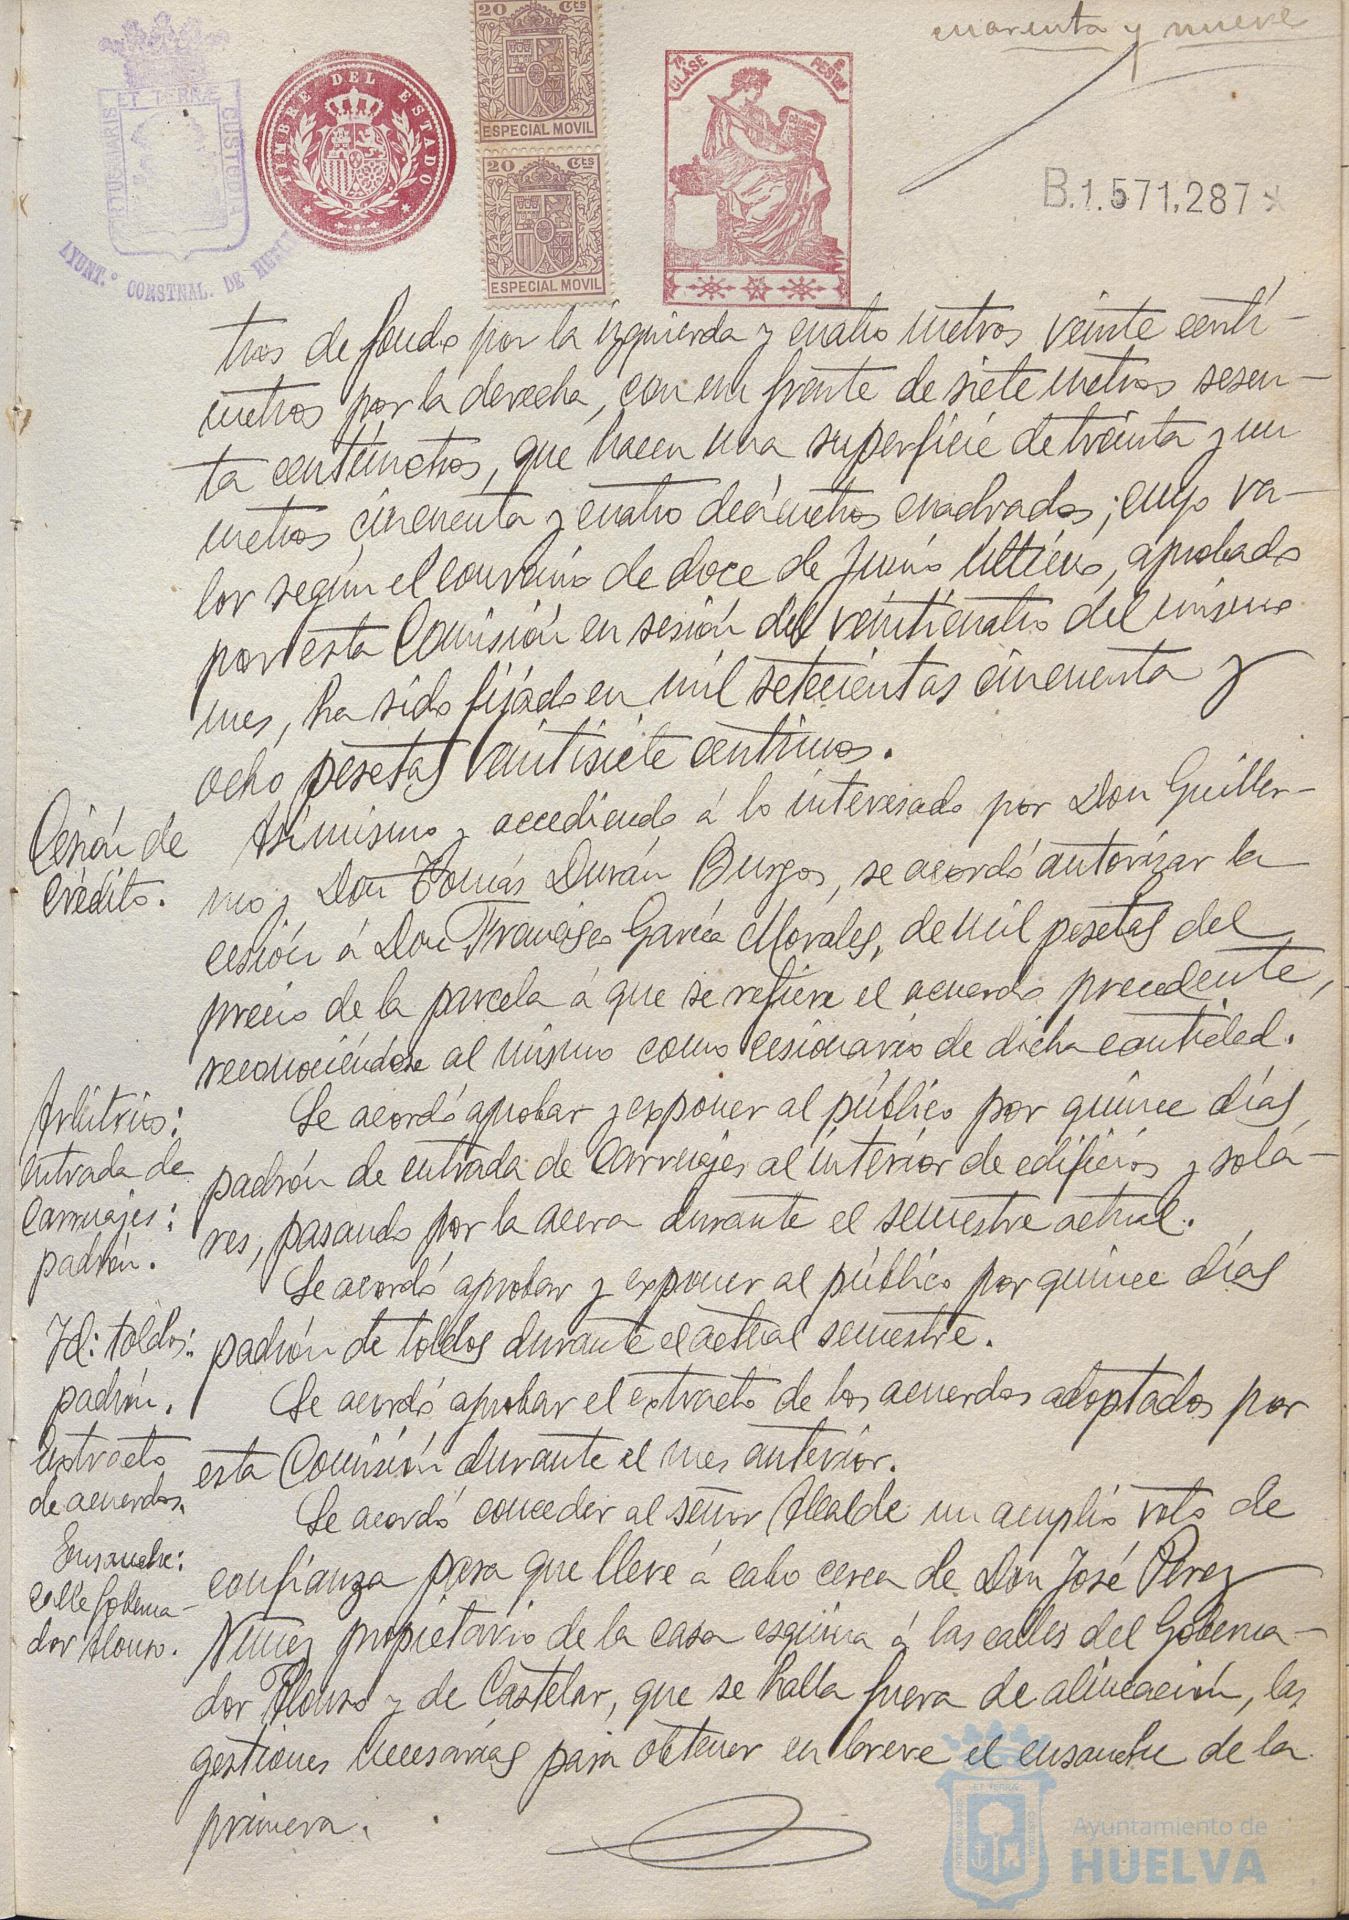 cuarenta y nueve
PORTUS MARIS ET TERRÆ CUSTODIA
AYUNT.º CONSTNAL. DE HUELVA
TIMBRE DEL ESTADO
20 Cts
ESPECIAL MOVIL
20 Cts
ESPECIAL MOVIL
7ª CLASE 8 PESTAS
B.1.571,287
tros de fondo por la izquierda y cuatro metros veinte centí-
metros por la derecha, con un frente de siete metros sesen-
ta centímetros, que hacen una superficie de treinta y un
metros cincuenta y cuatro decímetros cuadrados; cuyo va-
lor según el convenio de doce de Junio último, aprobado
por esta Comisión en sesión del veinticuatro del mismo
mes, ha sido fijado en mil setecientas cincuenta y
ocho pesetas veintisiete centimos.
Cesión de
crédito.
Asimismo y accediendo á lo interesado por Don Guiller-
mo y Don Tomás Durán Burgos, se acordó autorizar la
cesión á Don Francisco García Morales, de mil pesetas del
precio de la parcela a que se refiere el acuerdo precedente,
reconociéndose al mismo como cesionario de dicha cantidad.
Arbitrios:
entrada de
carruajes:
padrón.
Se acordó aprobar y exponer al público por quince días,
padrón de entrada de carruajes al interior de edificios y sola-
res, pasando por la acera durante el semestre actual.
Id: toldos:
padrón.
Se acordó aprobar y exponer al público por quince días
padrón de toldos durante el actual semestre.
Extracto
de acuerdos.
Se acordó aprobar el extracto de los acuerdos adoptados por
esta Comisión durante el mes anterior.
Ensanche:
calle Goberna-
dor Alonso.
Se acordó conceder al señor Alcalde un amplio voto de
confianza para que lleve á cabo cerca de Don José Perez
Nuñez propietario de la casa esquina á las calles del Goberna-
dor Alonso y de Castelar, que se halla fuera de alineación, las
gestiones necesarias para obtener en breve el ensanche de la
primera.
Ayuntamiento de
HUELVA